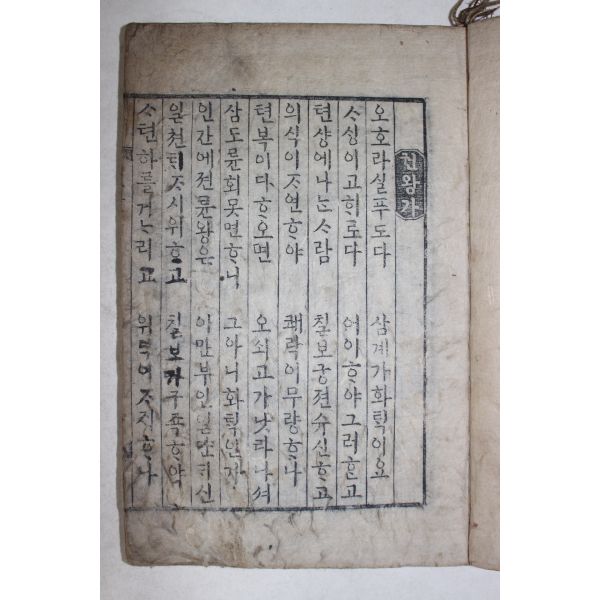 권왕가
오호라실푸도다 삼계가화ᄐᆡᆨ이오
ᄉᆞᄉᆡᆼ이고ᄒᆡ로다 어이ᄒᆞ야그러ᄒᆞᆫ고
텬샹에나ᄂᆞᆫ사람 칠보궁젼슈신ᄒᆞ고
의식이ᄌᆞ연ᄒᆞ야 쾌락이무량ᄒᆞ나
텬복이다ᄒᆞ오면 오쇠고가낫타나셔
삼도륜회못면ᄒᆞ니 그아니화ᄐᆡᆨ인가
인간에젼륜왕은 이만부인일만ᄃᆡ신
일쳔ᄐᆡᄌᆞ시위ᄒᆞ고 칠보가구족ᄒᆞ야
ᄉᆞ텬하를거ᄂᆞ리고 위덕이ᄌᆞᄌᆡᄒᆞ나